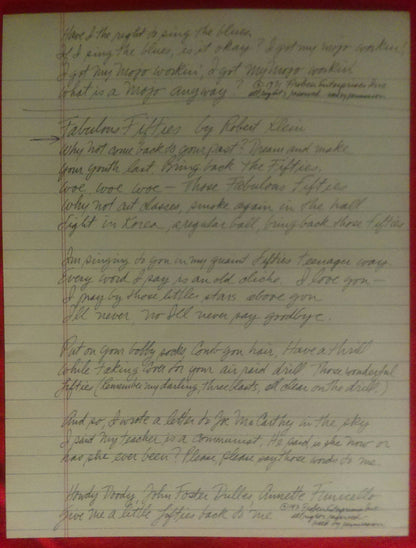 Have I the right to sing the blues,
If I sing the blues, is it okay? I got my mojo workin!
I got my mojo workin', I got my mojo workin
What is a mojo anyway? © 197 Proben Enterprises Inc
all rights reserved used by permission
Fabulous Fifties by Robert Klein
Why not come back to your past? Dream and make
your youth last Bring back the Fifties.
Woe, woe woe — Those Fabulous Fifties
Why not cut classes, smoke again in the hall
Fight in Korea, a regular ball, bring back those fifties
I'm singing to you in my quaint fifties teenager way
Every word I say is an old cliche. I love you —
I pray by those little stars above you
I'll never no I'll never say goodbye.
Put on your bobby socks Comb you hair, Have a thrill
while taking cover for your air raid drill Those wonderful
fifties (Remember my darling, three blasts, all clear on the drill)
And so, I wrote a letter to Joe McCarthy in the sky
I said my teacher is a communist, He said is she now or
has she ever been? Please, please say those words to me
Howdy Doody, John Foster Dulles Annette Funicello
Give me a little fifties back to me © Enterprises Inc
all rights reserved
used by permission